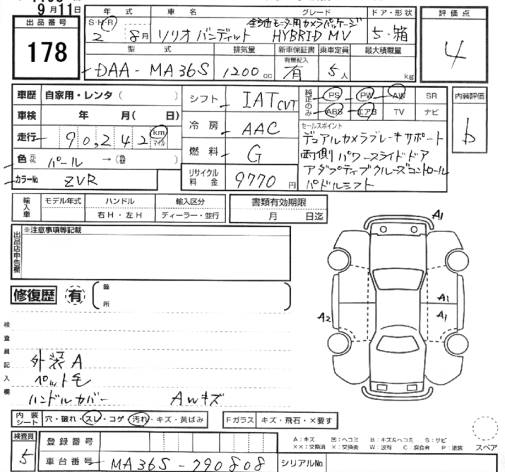 9月11日
出品番号
178
年式 車名 グレード ドア・形状
全方位モニター用カメラパッケージ
S・H・R 2 8月 ソリオバンディット HYBRID MV 5・箱
型式 排気量 新車保証書 乗車定員 最大積載量
有無記入
DAA-MA36S 1200cc 有 5人 kg
評価点
4
車歴 自家用・レンタ( )
車検 年 月( 日)
走行 90,242 km マイル
色 パール →( )
カラーNo ZVR
シフト IAT CVT
冷房 AAC
燃料 G
リサイクル料金 9770円
純正のみ PS PW AW SR
ABS エアB TV ナビ
セールスポイント
デュアルカメラブレーキサポート
両側パワースライドドア
アダプティブクルーズコントロール
パドルシフト
内装評価
b
輸入車 モデル年式 ハンドル 輸入区分 書類有効期限
右H・左H ディーラー・並行 月 日迄
出品店申告欄
※注意事項等記載
修復歴 有 箇所
検査員記入欄
外装A
ペット毛
ハンドルカバー AWキズ
A1
A1
A2 A1
内装シート 穴・破れ・スレ・コゲ 汚れ・キズ・黄ばみ Fガラス キズ・飛石・×要す
検査員
5
登録番号
車台番号 MA36S-790808 シリアルNo
A:キズ B:キズ&ヘコミ S:サビ
スペア